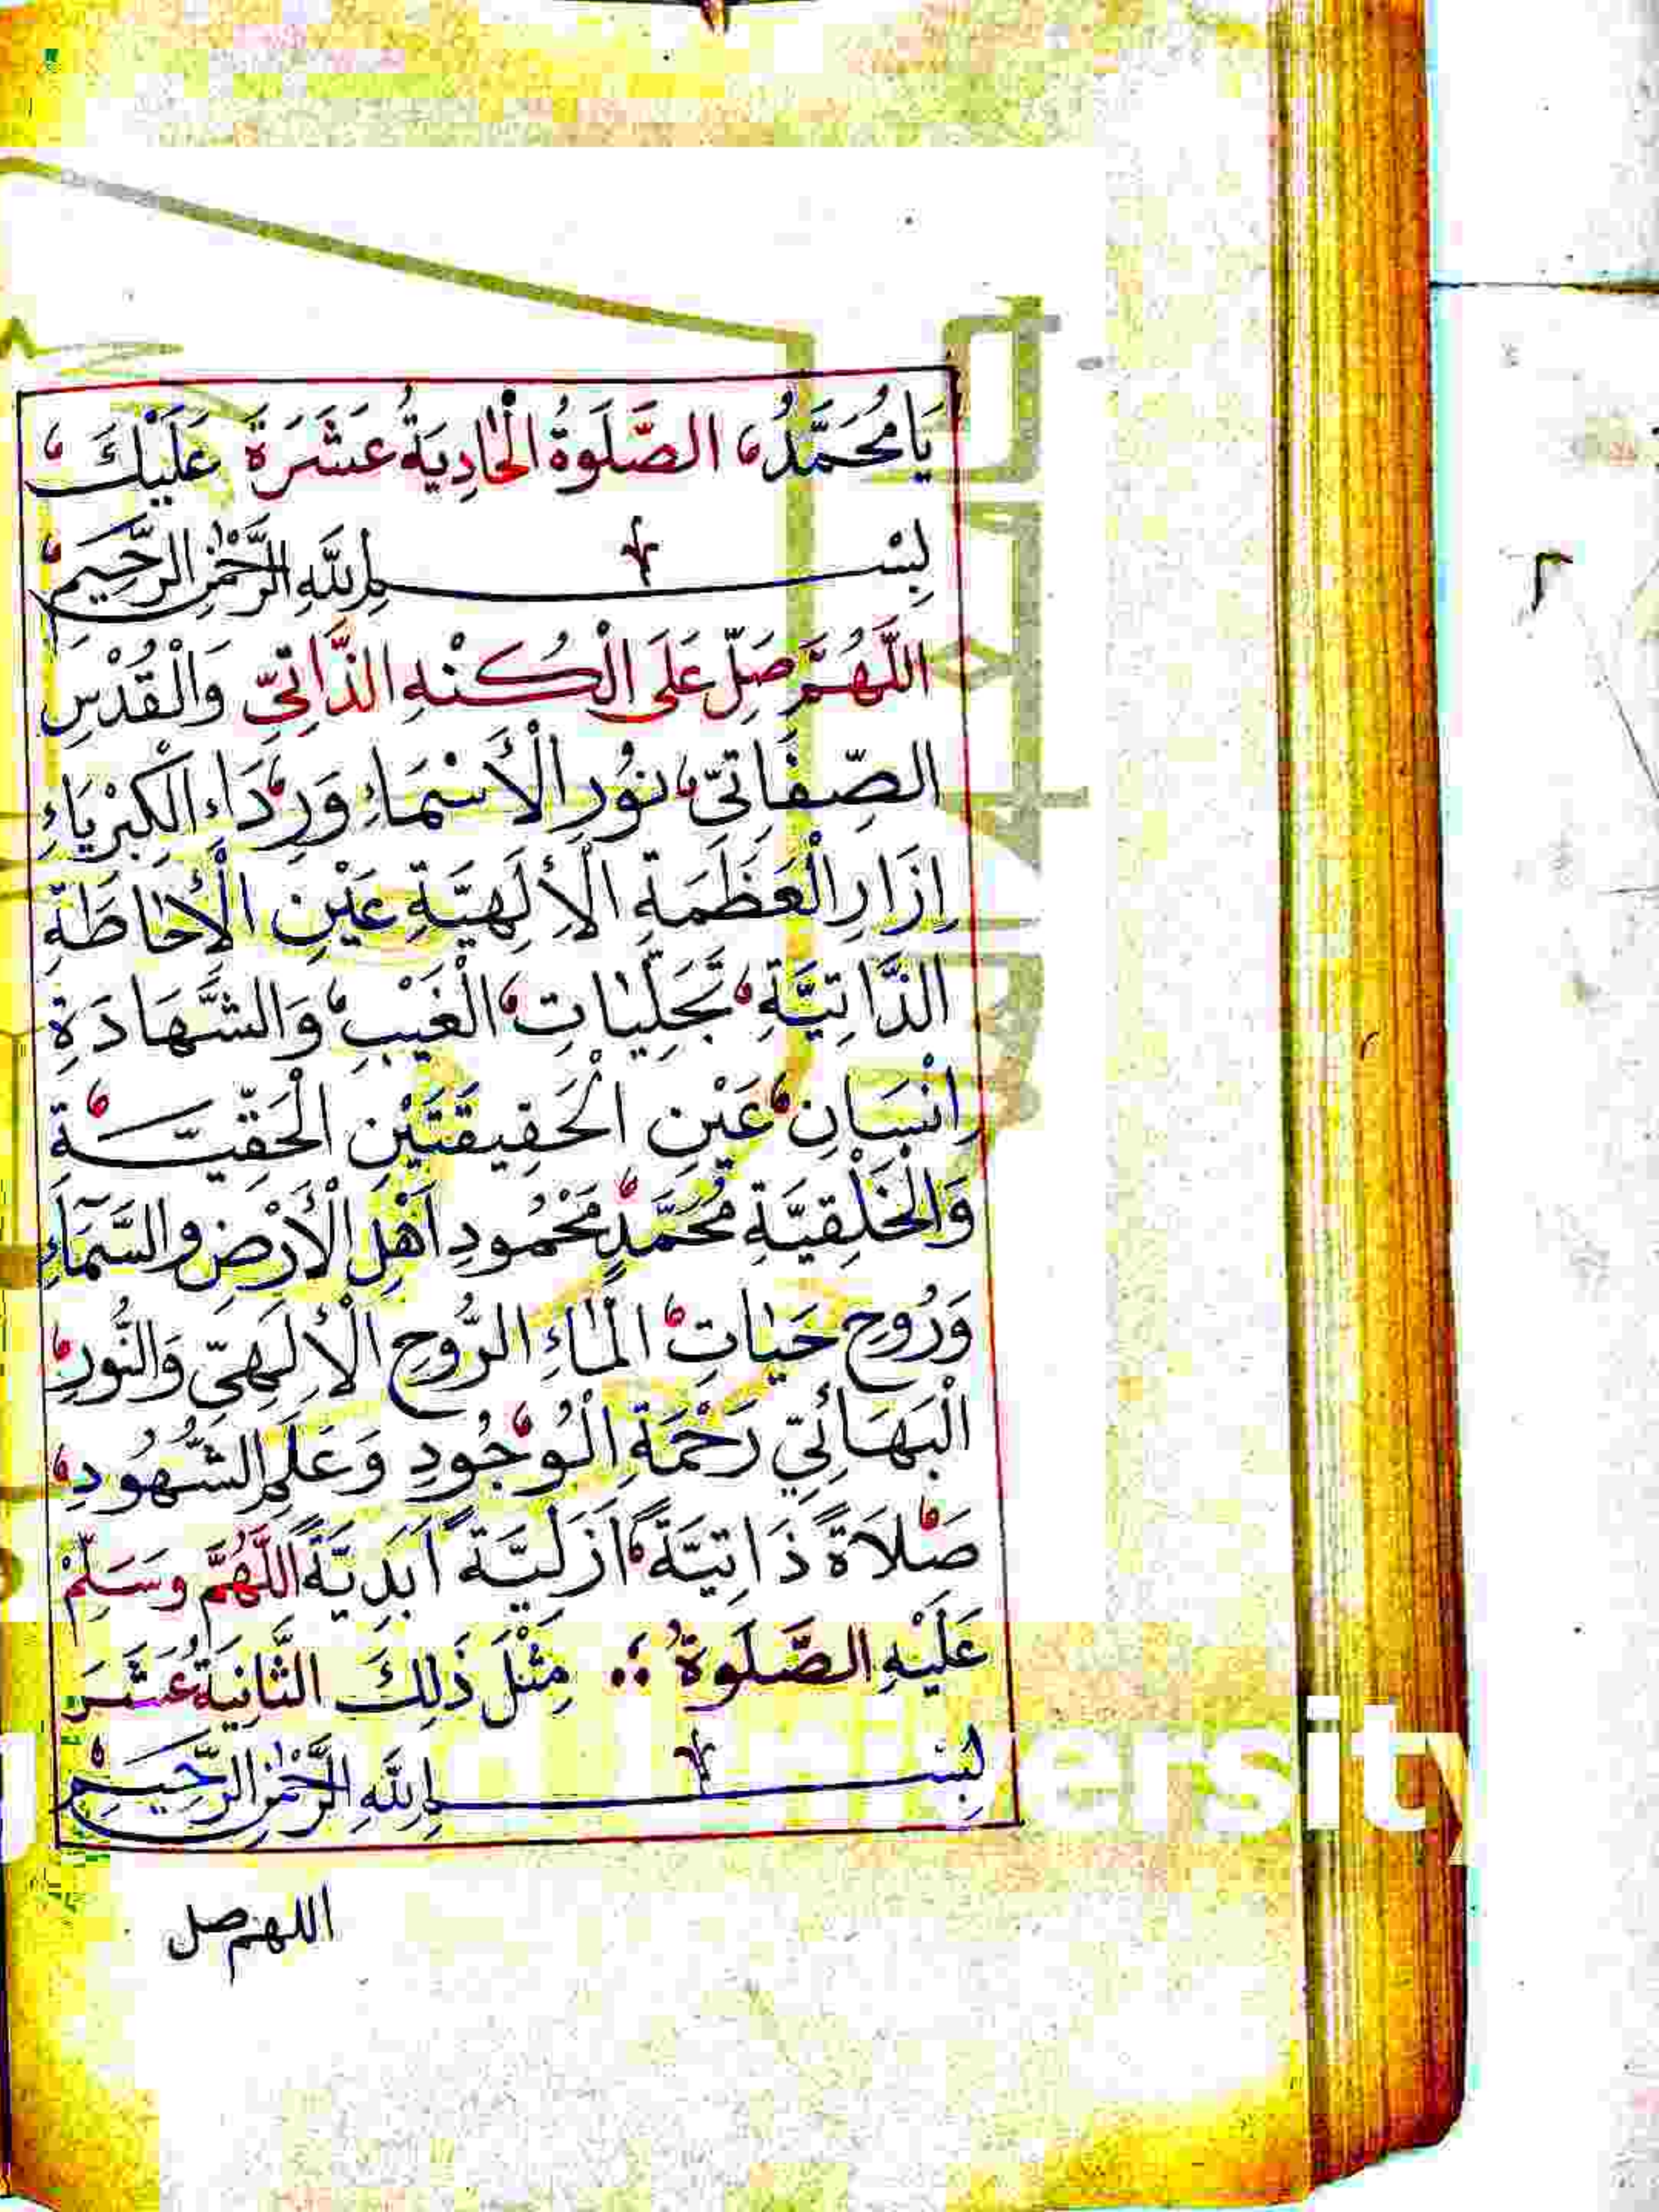 يَا مُحَمَّدُ، الصَّلَوةُ الْحَادِيَةُ عَشَرَةَ عَلَيْكَ
بِسْمِ اللَّهِ الرَّحْمٰنِ الرَّحِيمِ
اللَّهُمَّ صَلِّ عَلَى الْكُنْهِ الذَّاتِيِّ وَالْقُدْسِ
الصِّفَاتِيِّ نُورِ الْأَسْمَاءِ وَرِدَاءِ الْكِبْرِيَاءِ
إِزَارِ الْعَظَمَةِ الْإِلَهِيَّةِ عَيْنِ الْإِحَاطَةِ
الذَّاتِيَّةِ تَجَلِّيَاتِ الْغَيْبِ وَالشَّهَادَةِ
اِنْسَانِ عَيْنِ الْحَقِيقَتَيْنِ الْحَقِّيَّةِ
وَالْخَلْقِيَّةِ مُحَمَّدٍ مَحْمُودِ اَهْلِ الْأَرْضِ والسَّمَاءِ
وَرُوحِ حَيَاتِ الْمَاءِ الرُّوحِ الْإِلَهِيِّ وَالنُّورِ
الْبَهَائِيِّ رَحْمَةِ الْوُجُودِ وَعَلَمِ الشُّهُودِ
صَلَاةً ذَاتِيَّةً اَزَلِيَّةً اَبَدِيَّةً اللَّهُمَّ وسَلِّمْ
عَلَيْهِ الصَّلَوةُ مِثْلَ ذَلِكَ الثَّانِيَةُ عَشَرَ
بِسْمِ اللَّهِ الرَّحْمٰنِ الرَّحِيمِ
اللهم صل
٢
University